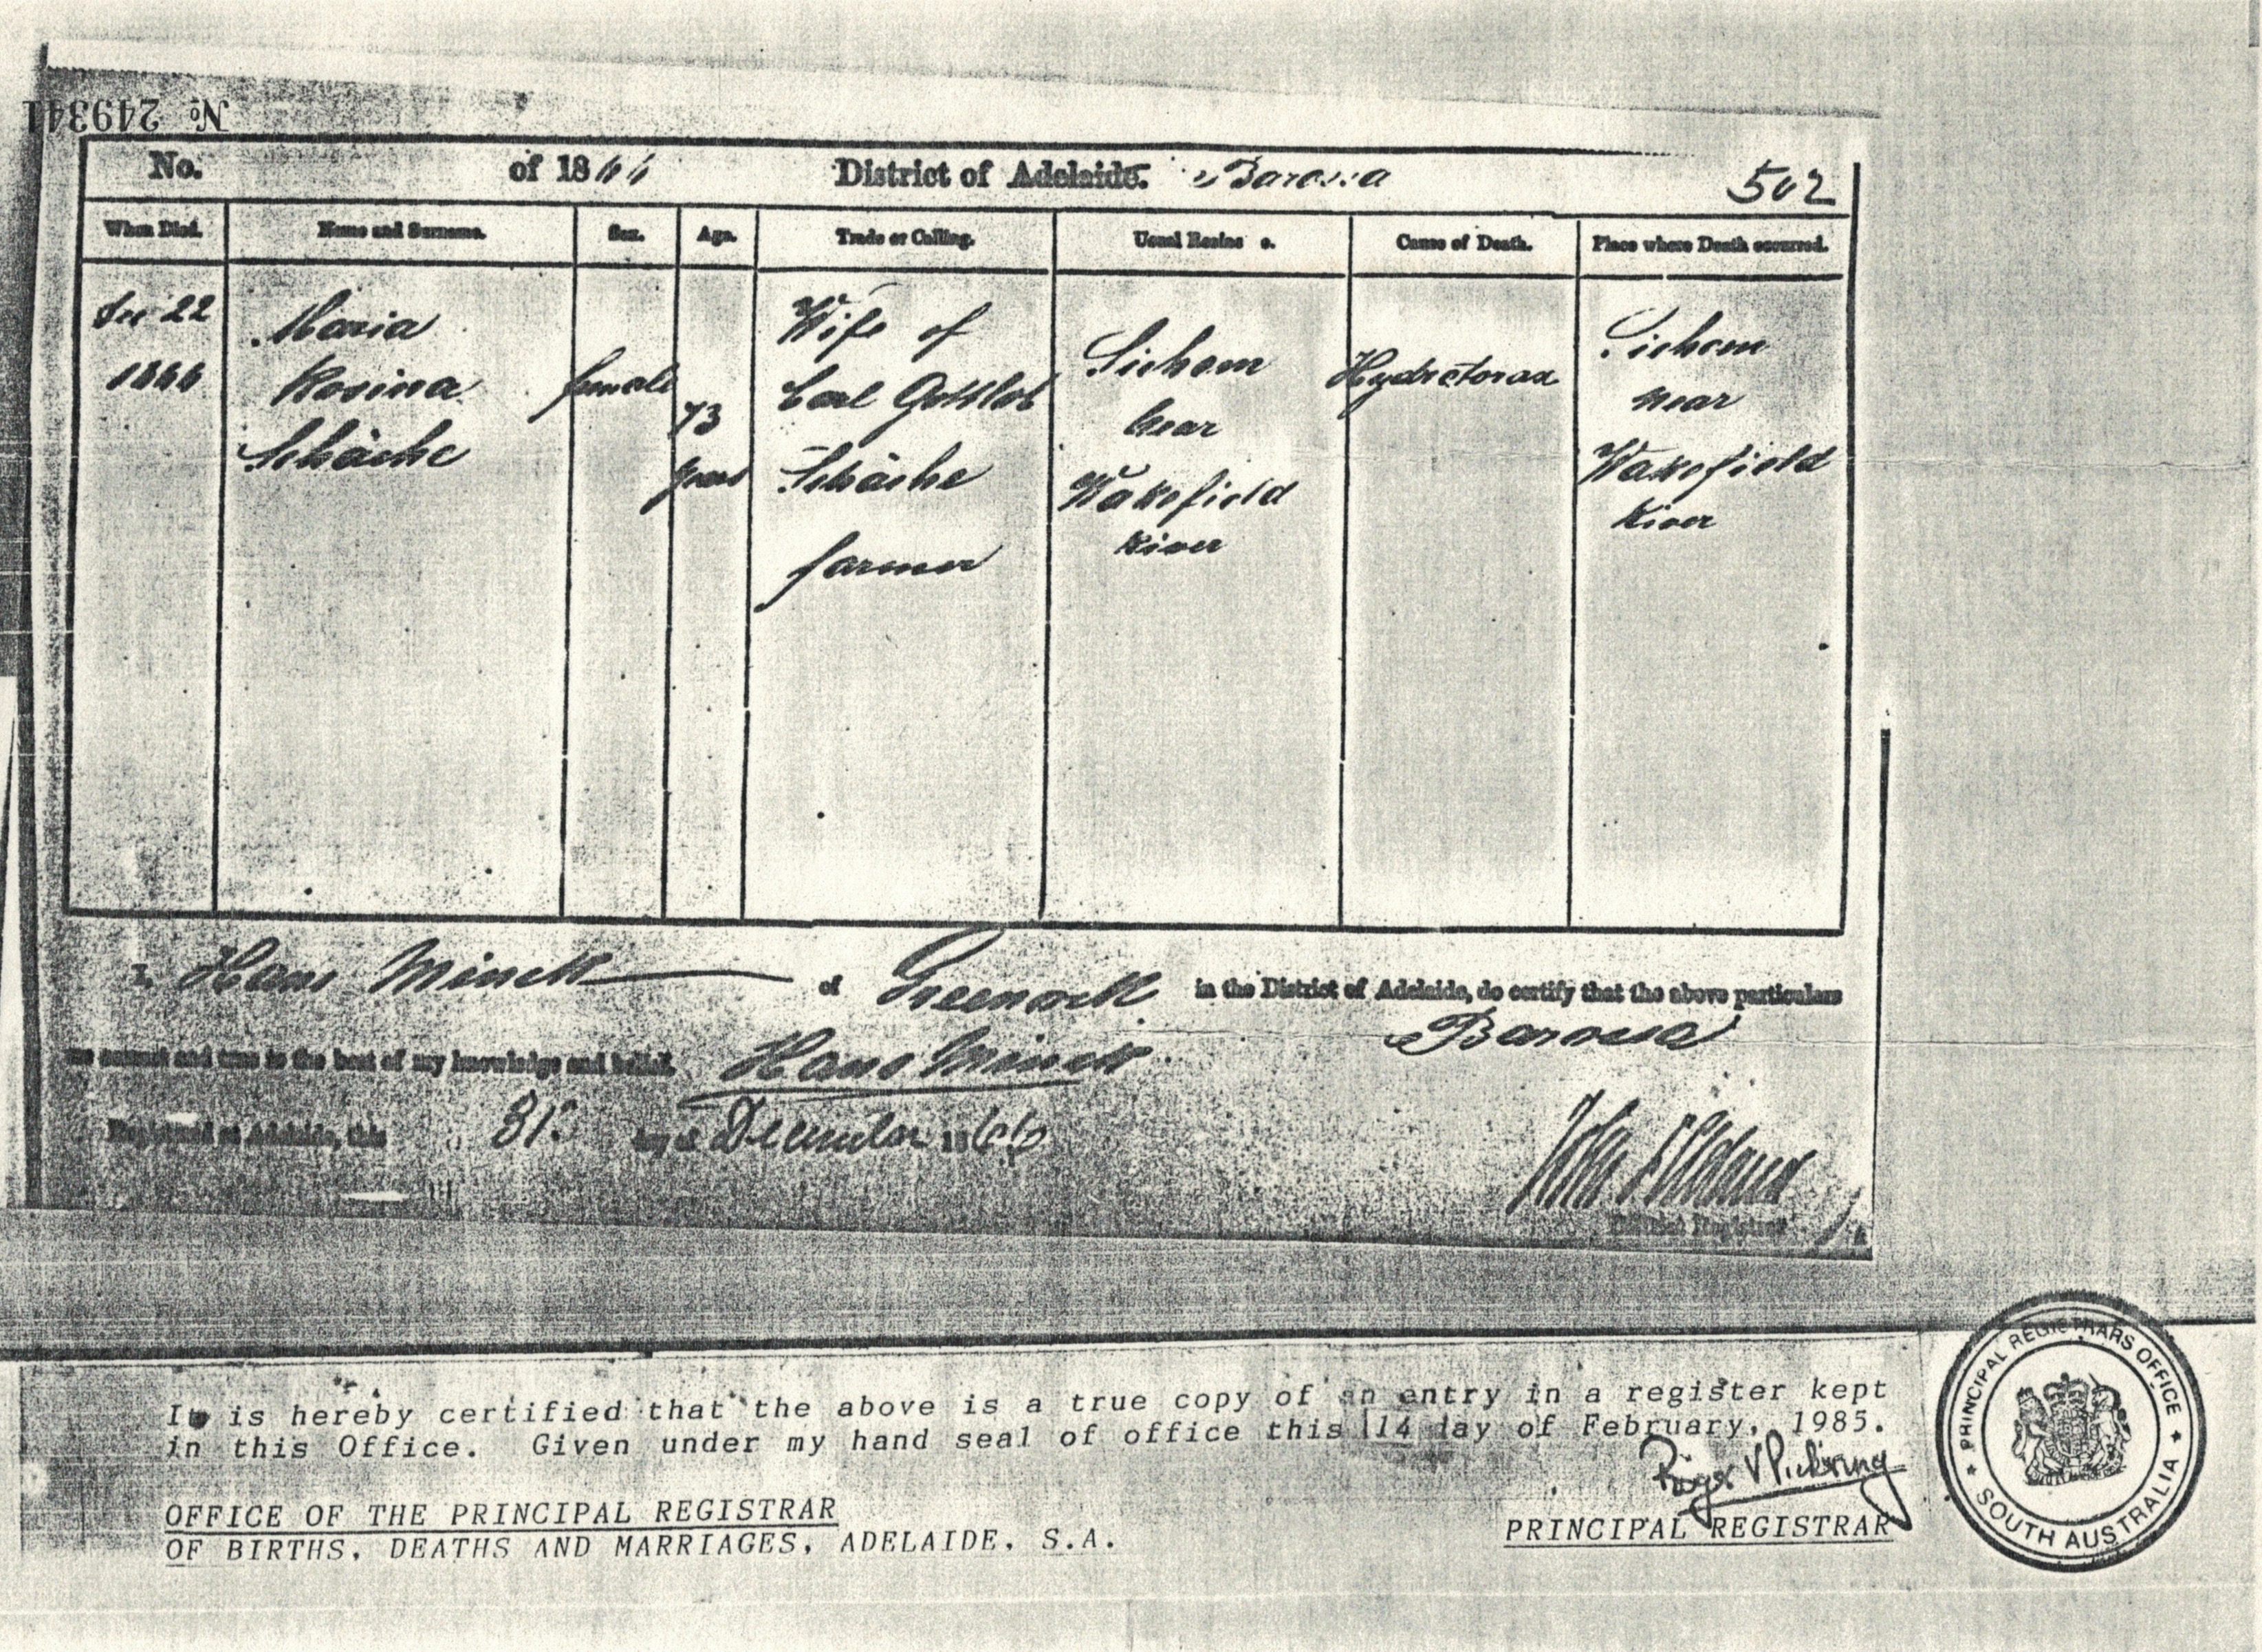 No. 249341
No. of 1866 District of Adelaide. Barossa 502
When Died. Name and Surname. Sex. Age. Trade or Calling. Usual Residence. Cause of Death. Place where Death occurred.
Dec 22
1866
Maria
Rosina
Schäche
female
73
years
Wife of
Carl Gottlob
Schäche
farmer
Sichem
near
Wakefield
River
Hydrotorax
Sichem
near
Wakefield
River
I, Hans Minck of Greenock in the District of Adelaide, do certify that the above particulars
Barossa
are correct and true to the best of my knowledge and belief. Hans Minck
Registered at Adelaide, this 31. day of December 1866
District Registrar
It is hereby certified that the above is a true copy of an entry in a register kept
in this Office. Given under my hand seal of office this 14 day of February, 1985.
Roger V Pickering
OFFICE OF THE PRINCIPAL REGISTRAR
OF BIRTHS, DEATHS AND MARRIAGES, ADELAIDE, S.A.
PRINCIPAL REGISTRAR
PRINCIPAL REGISTRARS OFFICE
SOUTH AUSTRALIA